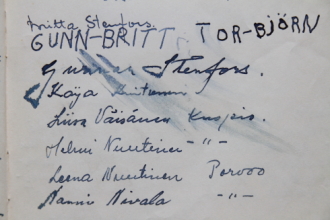 Britta Stenfors.
GUNN-BRITT, TOR-BJÖRN
Gunnar Stenfors.
Kaija
Liisa Väisänen Kuopio.
Helmi Nuutinen -"-
Leena Nuutinen Porvoo
Hannu Nivala -"-